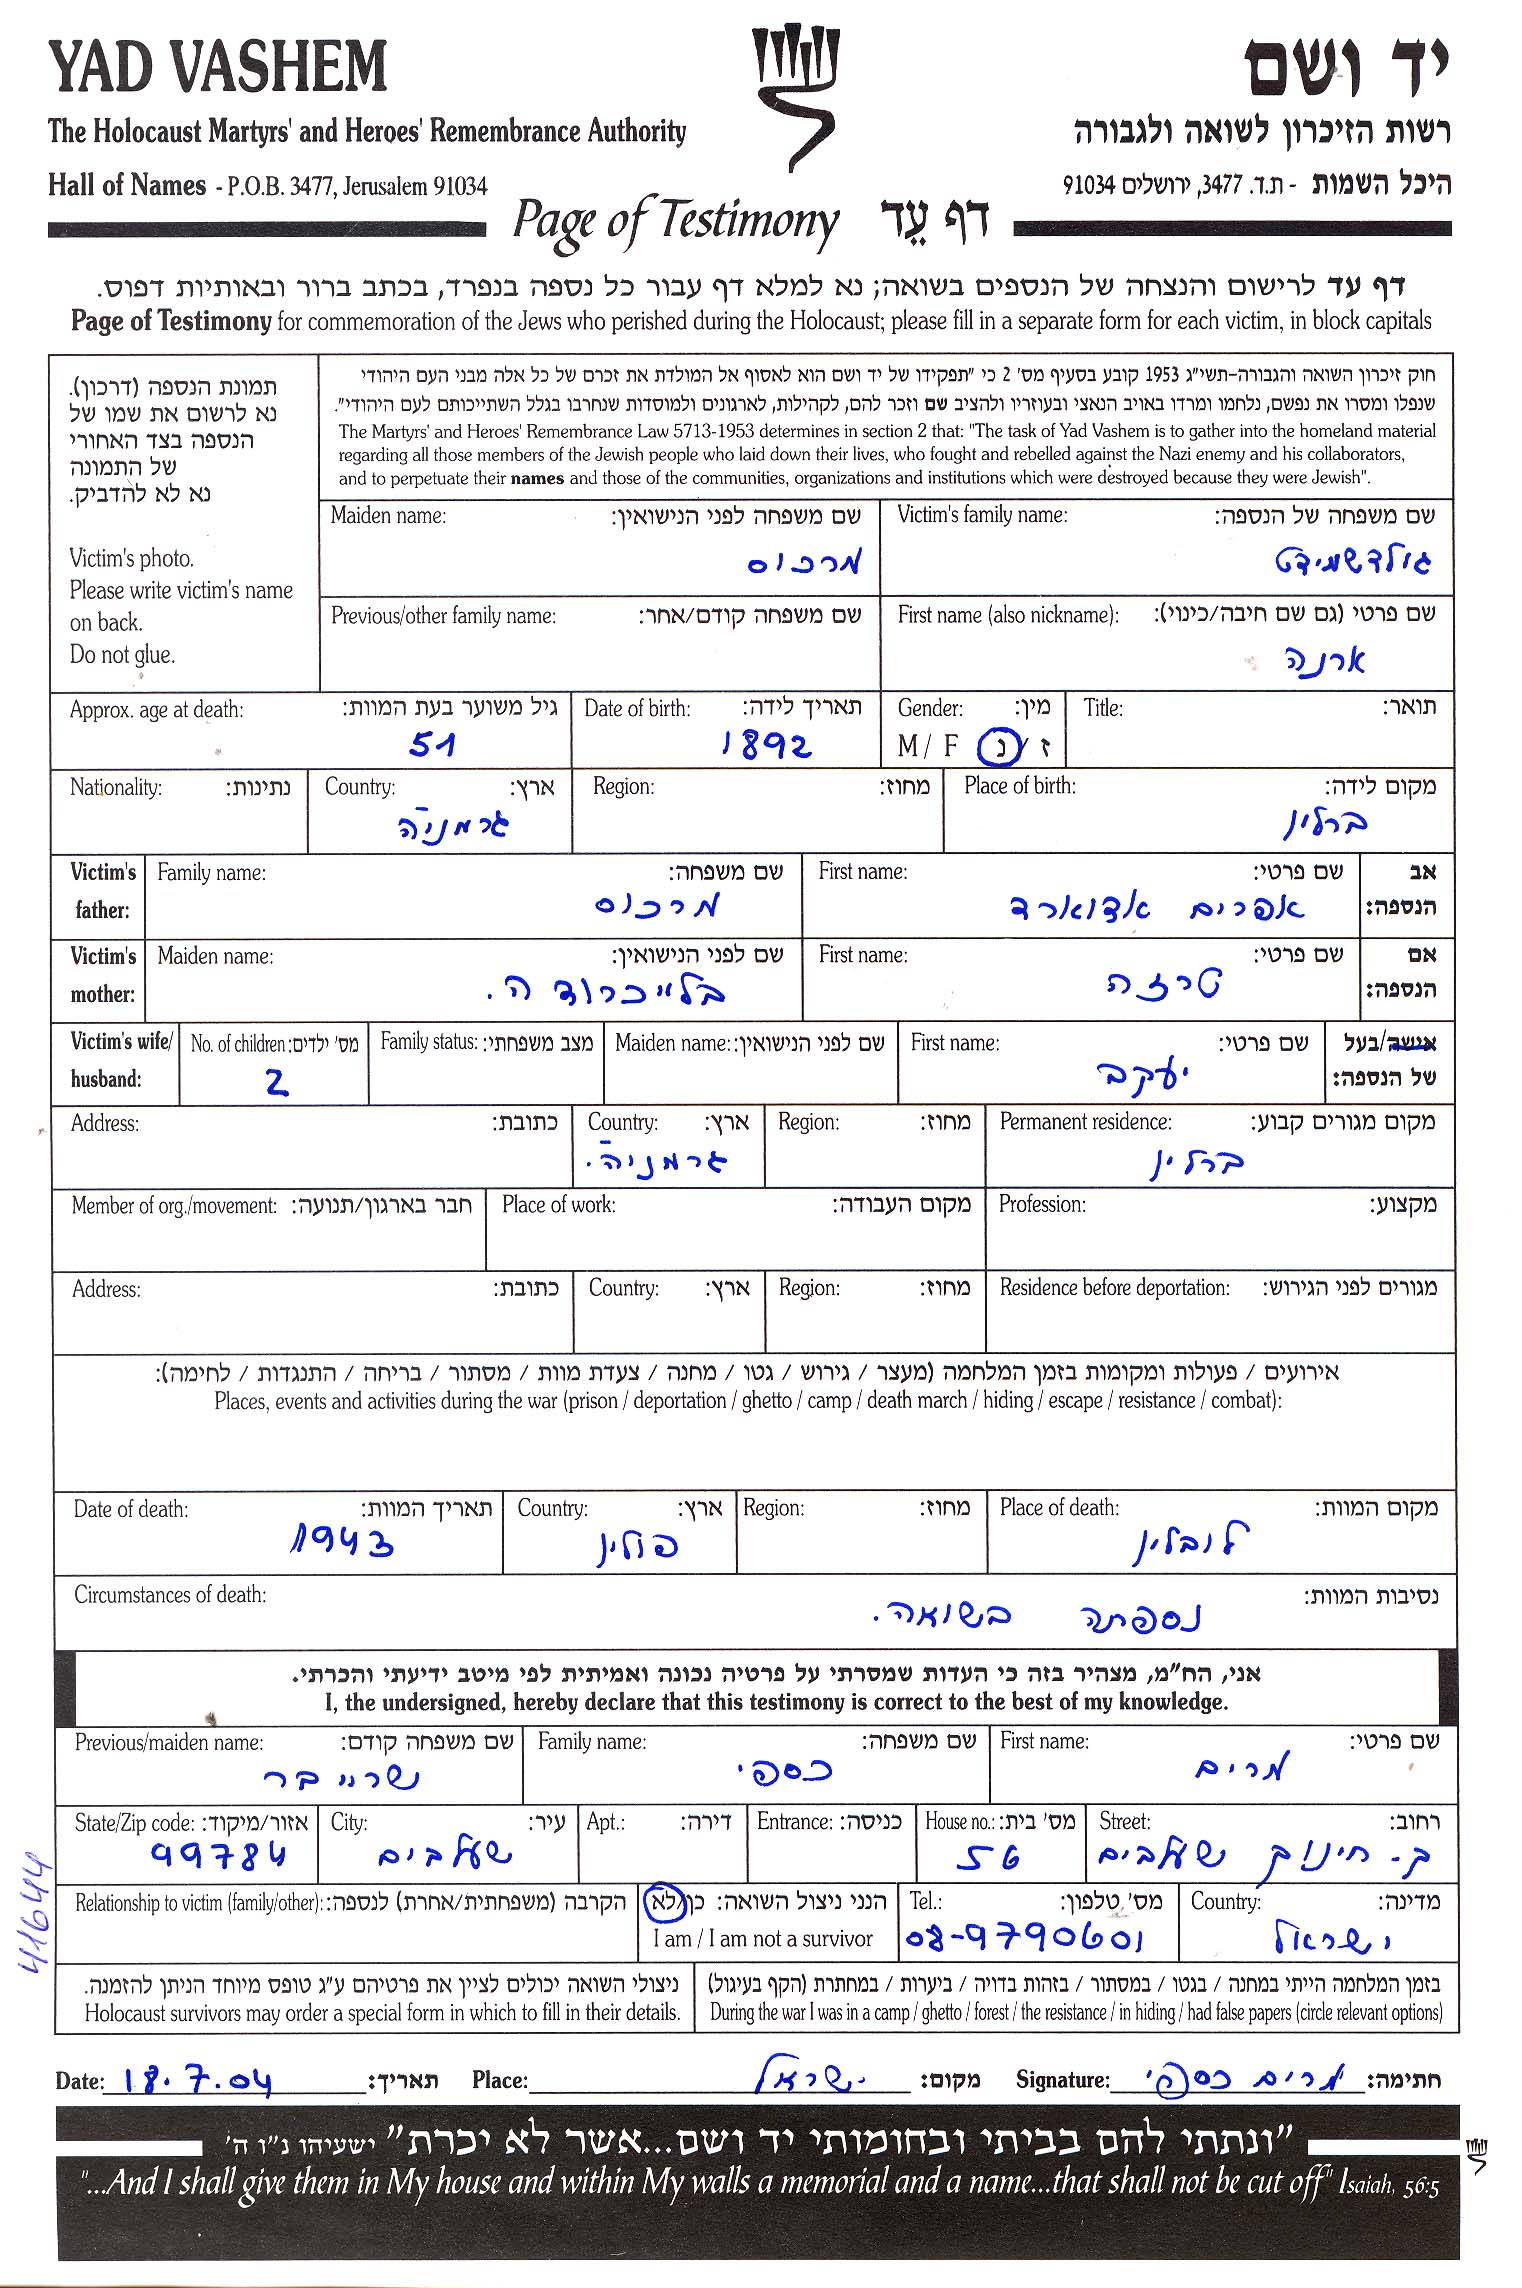 YAD VASHEM
יד ושם
The Holocaust Martyrs' and Heroes' Remembrance Authority
רשות הזיכרון לשואה ולגבורה
Hall of Names - P.O.B. 3477, Jerusalem 91034
היכל השמות - ת.ד. 3477, ירושלים 91034
Page of Testimony דף עֵד
דף עד לרישום והנצחה של הנספים בשואה; נא למלא דף עבור כל נספה בנפרד, בכתב ברור ובאותיות דפוס.
Page of Testimony for commemoration of the Jews who perished during the Holocaust; please fill in a separate form for each victim, in block capitals
תמונת הנספה (דרכון).
נא לרשום את שמו של
הנספה בצד האחורי
של התמונה
נא לא להדביק.
Victim's photo.
Please write victim's name
on back.
Do not glue.
חוק זיכרון השואה והגבורה-תשי"ג 1953 קובע בסעיף מס' 2 כי "תפקידו של יד ושם הוא לאסוף אל המולדת את זכרם של כל אלה מבני העם היהודי
שנפלו ומסרו את נפשם, נלחמו ומרדו באויב הנאצי ובעוזריו ולהציב שם וזכר להם, לקהילות, לארגונים ולמוסדות שנחרבו בגלל השתייכותם לעם היהודי".
The Martyrs' and Heroes' Remembrance Law 5713-1953 determines in section 2 that: "The task of Yad Vashem is to gather into the homeland material
regarding all those members of the Jewish people who laid down their lives, who fought and rebelled against the Nazi enemy and his collaborators,
and to perpetuate their names and those of the communities, organizations and institutions which were destroyed because they were Jewish".
Victim's family name: שם משפחה של הנספה:
גולדשמידט
Maiden name: שם משפחה לפני הנישואין:
מרכוס
First name (also nickname): שם פרטי (גם שם חיבה/כינוי):
ארנה
Previous/other family name: שם משפחה קודם/אחר:
Title: תואר:
Gender: מין:
M / F ז / נ
Date of birth: תאריך לידה:
1892
Approx. age at death: גיל משוער בעת המוות:
51
Place of birth: מקום לידה:
ברלין
Region: מחוז:
Country: ארץ:
גרמניה
Nationality: נתינות:
Victim's father: אב הנספה:
First name: שם פרטי:
אפרים אדוארד
Family name: שם משפחה:
מרכוס
Victim's mother: אם הנספה:
First name: שם פרטי:
טרזה
Maiden name: שם לפני הנישואין:
בלייכרודה.
Victim's wife/ husband: אישה/בעל של הנספה:
First name: שם פרטי:
יעקב
Maiden name: שם לפני הנישואין:
Family status: מצב משפחתי:
No. of children: מס' ילדים:
2
Permanent residence: מקום מגורים קבוע:
ברלין
Region: מחוז:
Country: ארץ:
גרמניה.
Address: כתובת:
Profession: מקצוע:
Place of work: מקום העבודה:
Member of org./movement: חבר בארגון/תנועה:
Residence before deportation: מגורים לפני הגירוש:
Region: מחוז:
Country: ארץ:
Address: כתובת:
אירועים / פעולות ומקומות בזמן המלחמה (מעצר / גירוש / גטו / מחנה / צעדת מוות / מסתור / בריחה / התנגדות / לחימה):
Places, events and activities during the war (prison / deportation / ghetto / camp / death march / hiding / escape / resistance / combat):
Place of death: מקום המוות:
לובלין
Region: מחוז:
Country: ארץ:
פולין
Date of death: תאריך המוות:
1943
Circumstances of death: נסיבות המוות:
נספתה בשואה.
אני, הח"מ, מצהיר בזה כי העדות שמסרתי על פרטיה נכונה ואמיתית לפי מיטב ידיעתי והכרתי.
I, the undersigned, hereby declare that this testimony is correct to the best of my knowledge.
First name: שם פרטי:
מרים
Family name: שם משפחה:
כספי
Previous/maiden name: שם משפחה קודם:
שרייבר
Street: רחוב:
ק- חינוך שעלבים
House no.: מס' בית:
56
Entrance: כניסה:
Apt.: דירה:
City: עיר:
שעלבים
State/Zip code: אזור/מיקוד:
99784
Country: מדינה:
ישראל
Tel.: מס' טלפון:
08-9790601
הנני ניצול השואה: כן/לא
I am / I am not a survivor
Relationship to victim (family/other): הקרבה (משפחתית/אחרת) לנספה:
416644
בזמן המלחמה הייתי במחנה / בגטו / במסתור / בזהות בדויה / ביערות / במחתרת (הקף בעיגול)
During the war I was in a camp / ghetto / forest / the resistance / in hiding / had false papers (circle relevant options)
ניצולי השואה יכולים לציין את פרטיהם ע"ג טופס מיוחד הניתן להזמנה.
Holocaust survivors may order a special form in which to fill in their details.
Date: 18.7.04 תאריך: Place: ישראל מקום: Signature: מרים כספי חתימה:
"ונתתי להם בביתי ובחומותי יד ושם...אשר לא יכרת" ישעיהו נ"ו ה'
"...And I shall give them in My house and within My walls a memorial and a name...that shall not be cut off" Isaiah, 56:5